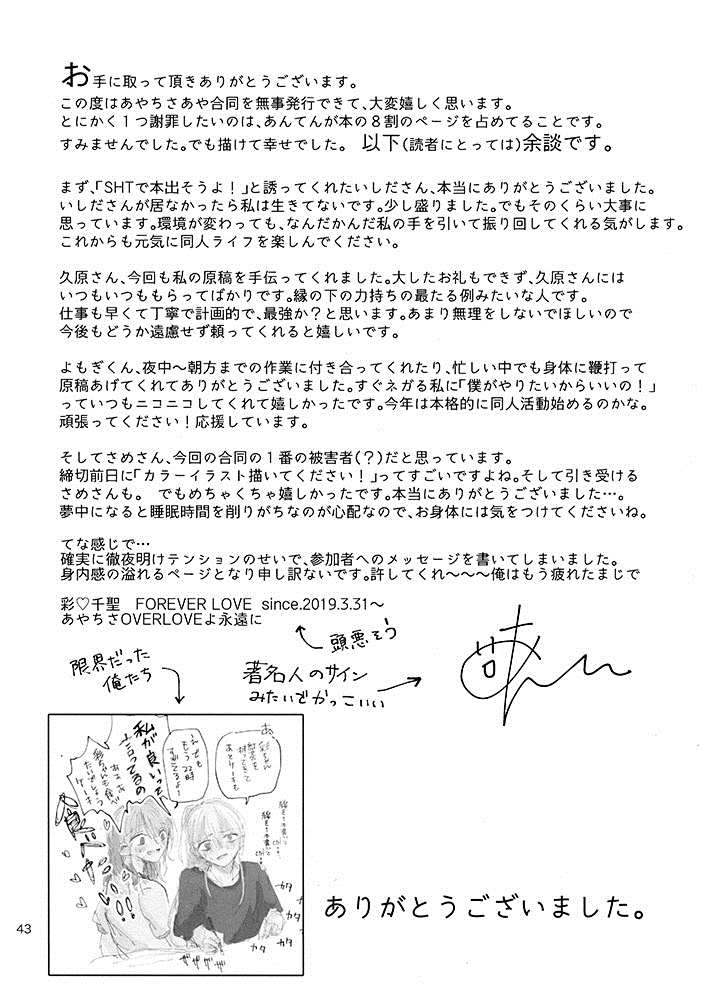 お手に取って頂きありがとうございます。
この度はあやちさあや合同を無事発行できて、大変嬉しく思います。
とにかく１つ謝罪したいのは、あんてんが本の８割のページを占めてることです。
すみませんでした。でも描けて幸せでした。 以下(読者にとっては)余談です。
まず、「SHTで本出そうよ！」と誘ってくれたいしださん、本当にありがとうございました。
いしださんが居なかったら私は生きてないです。少し盛りました。でもそのくらい大事に
思っています。環境が変わっても、なんだかんだ私の手を引いて振り回してくれる気がします。
これからも元気に同人ライフを楽しんでください。
久原さん、今回も私の原稿を手伝ってくれました。大したお礼もできず、久原さんには
いつもいつももらってばかりです。縁の下の力持ちの最たる例みたいな人です。
仕事も早くて丁寧で計画的で、最強か？と思います。あまり無理をしないでほしいので
今後もどうか遠慮せず頼ってくれると嬉しいです。
よもぎくん、夜中〜朝方までの作業に付き合ってくれたり、忙しい中でも身体に鞭打って
原稿あげてくれてありがとうございました。すぐネガる私に「僕がやりたいからいいの！」
っていつもニコニコしてくれて嬉しかったです。今年は本格的に同人活動始めるのかな。
頑張ってください！応援しています。
そしてさめさん、今回の合同の１番の被害者(？)だと思っています。
締切前日に「カラーイラスト描いてください！」ってすごいですよね。そして引き受ける
さめさんも。 でもめちゃくちゃ嬉しかったです。本当にありがとうございました…。
夢中になると睡眠時間を削りがちなのが心配なので、お身体には気をつけてくださいね。
てな感じで…
確実に徹夜明けテンションのせいで、参加者へのメッセージを書いてしまいました。
身内感の溢れるページとなり申し訳ないです。許してくれ〜〜〜俺はもう疲れたまじで
彩♡千聖 FOREVER LOVE since.2019.3.31〜
あやちさOVERLOVEよ永遠に
頭悪そう
限界だった
俺たち
著名人のサイン
みたいでかっこいい
私が良いって
言ってるの
えっでも
もう22時
すぎてるよ！
あ、彩ちゃん
カタ
カタ
カタ
ザザザザ
ありがとうございました。
43